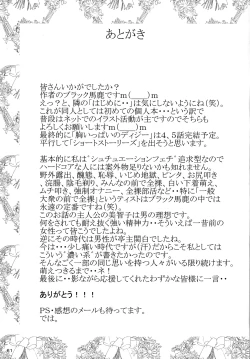 あとがき
皆さんいかがでしたか？
作者のブラック馬鹿ですｍ（＿＿）ｍ
えっ？と、隣の「はじめに・・」は気にしないようにね（笑）。
これが同人としては初めての個人本・・・という訳で
普段はネットでのイラスト活動が主ですのでそちらも
よろしくお願いしますｍ（＿＿）ｍ
最終的に「胸いっぱいのディジー」は４、５話完結予定。
平行して「ショートストーリーズ」を出そうと思います。
基本的に私は“シュチュエーションフェチ”追求型なので
ハードコアな人には案外物足りないかも知れません。
野外露出、醜態、恥辱、いじめ地獄、ビンタ、お尻叩き
、浣腸、陰毛剃り、みんなの前で全裸、白い下着萌え、
強制オナニー、全裸部活など・・特に「一般
大衆の前で全裸」というテイストはブラック馬鹿の中では
永遠の定番ですね（笑）。
このお話の主人公の美智子は男の理想です。
何をされても耐え抜く精神力・・そういえば一昔前の
女性って皆こうでしたよね。
逆にその時代は男性が亭主関白でしたね。
今は・・・少し痛い時代ですが（汗）だからこそ私としては
こういう“濃い系”が書きたかったのです。
そんなごく一部の同じ思いを持つ人々がいる限り続けます。
萌えつきるまで・・ネ！
最後に・・影ながら応援してくれたわずかな皆様に一言・・
ありがとう！！！
PS・感想のメールも待ってます。
では。